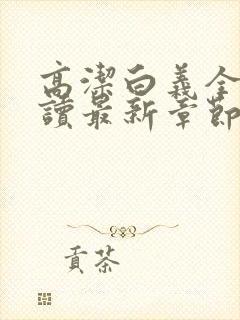 高潔白義全
讀最新章節
貢茶